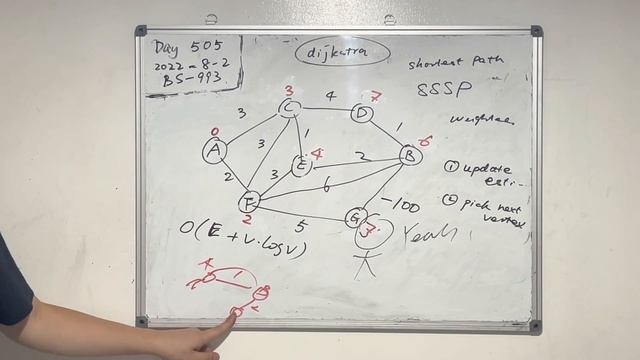 Day 505
2022-8-2
BS-993
dijkatra
shortest path
SSSP
① update
② pick next
vertex
3
4
7
3
0
C
D
3
1
1
A
E
4
2
B
6
2
3
3
6
F
2
5
G
7
-100
Yeah
O(E + V·logV)
A
1
B
C